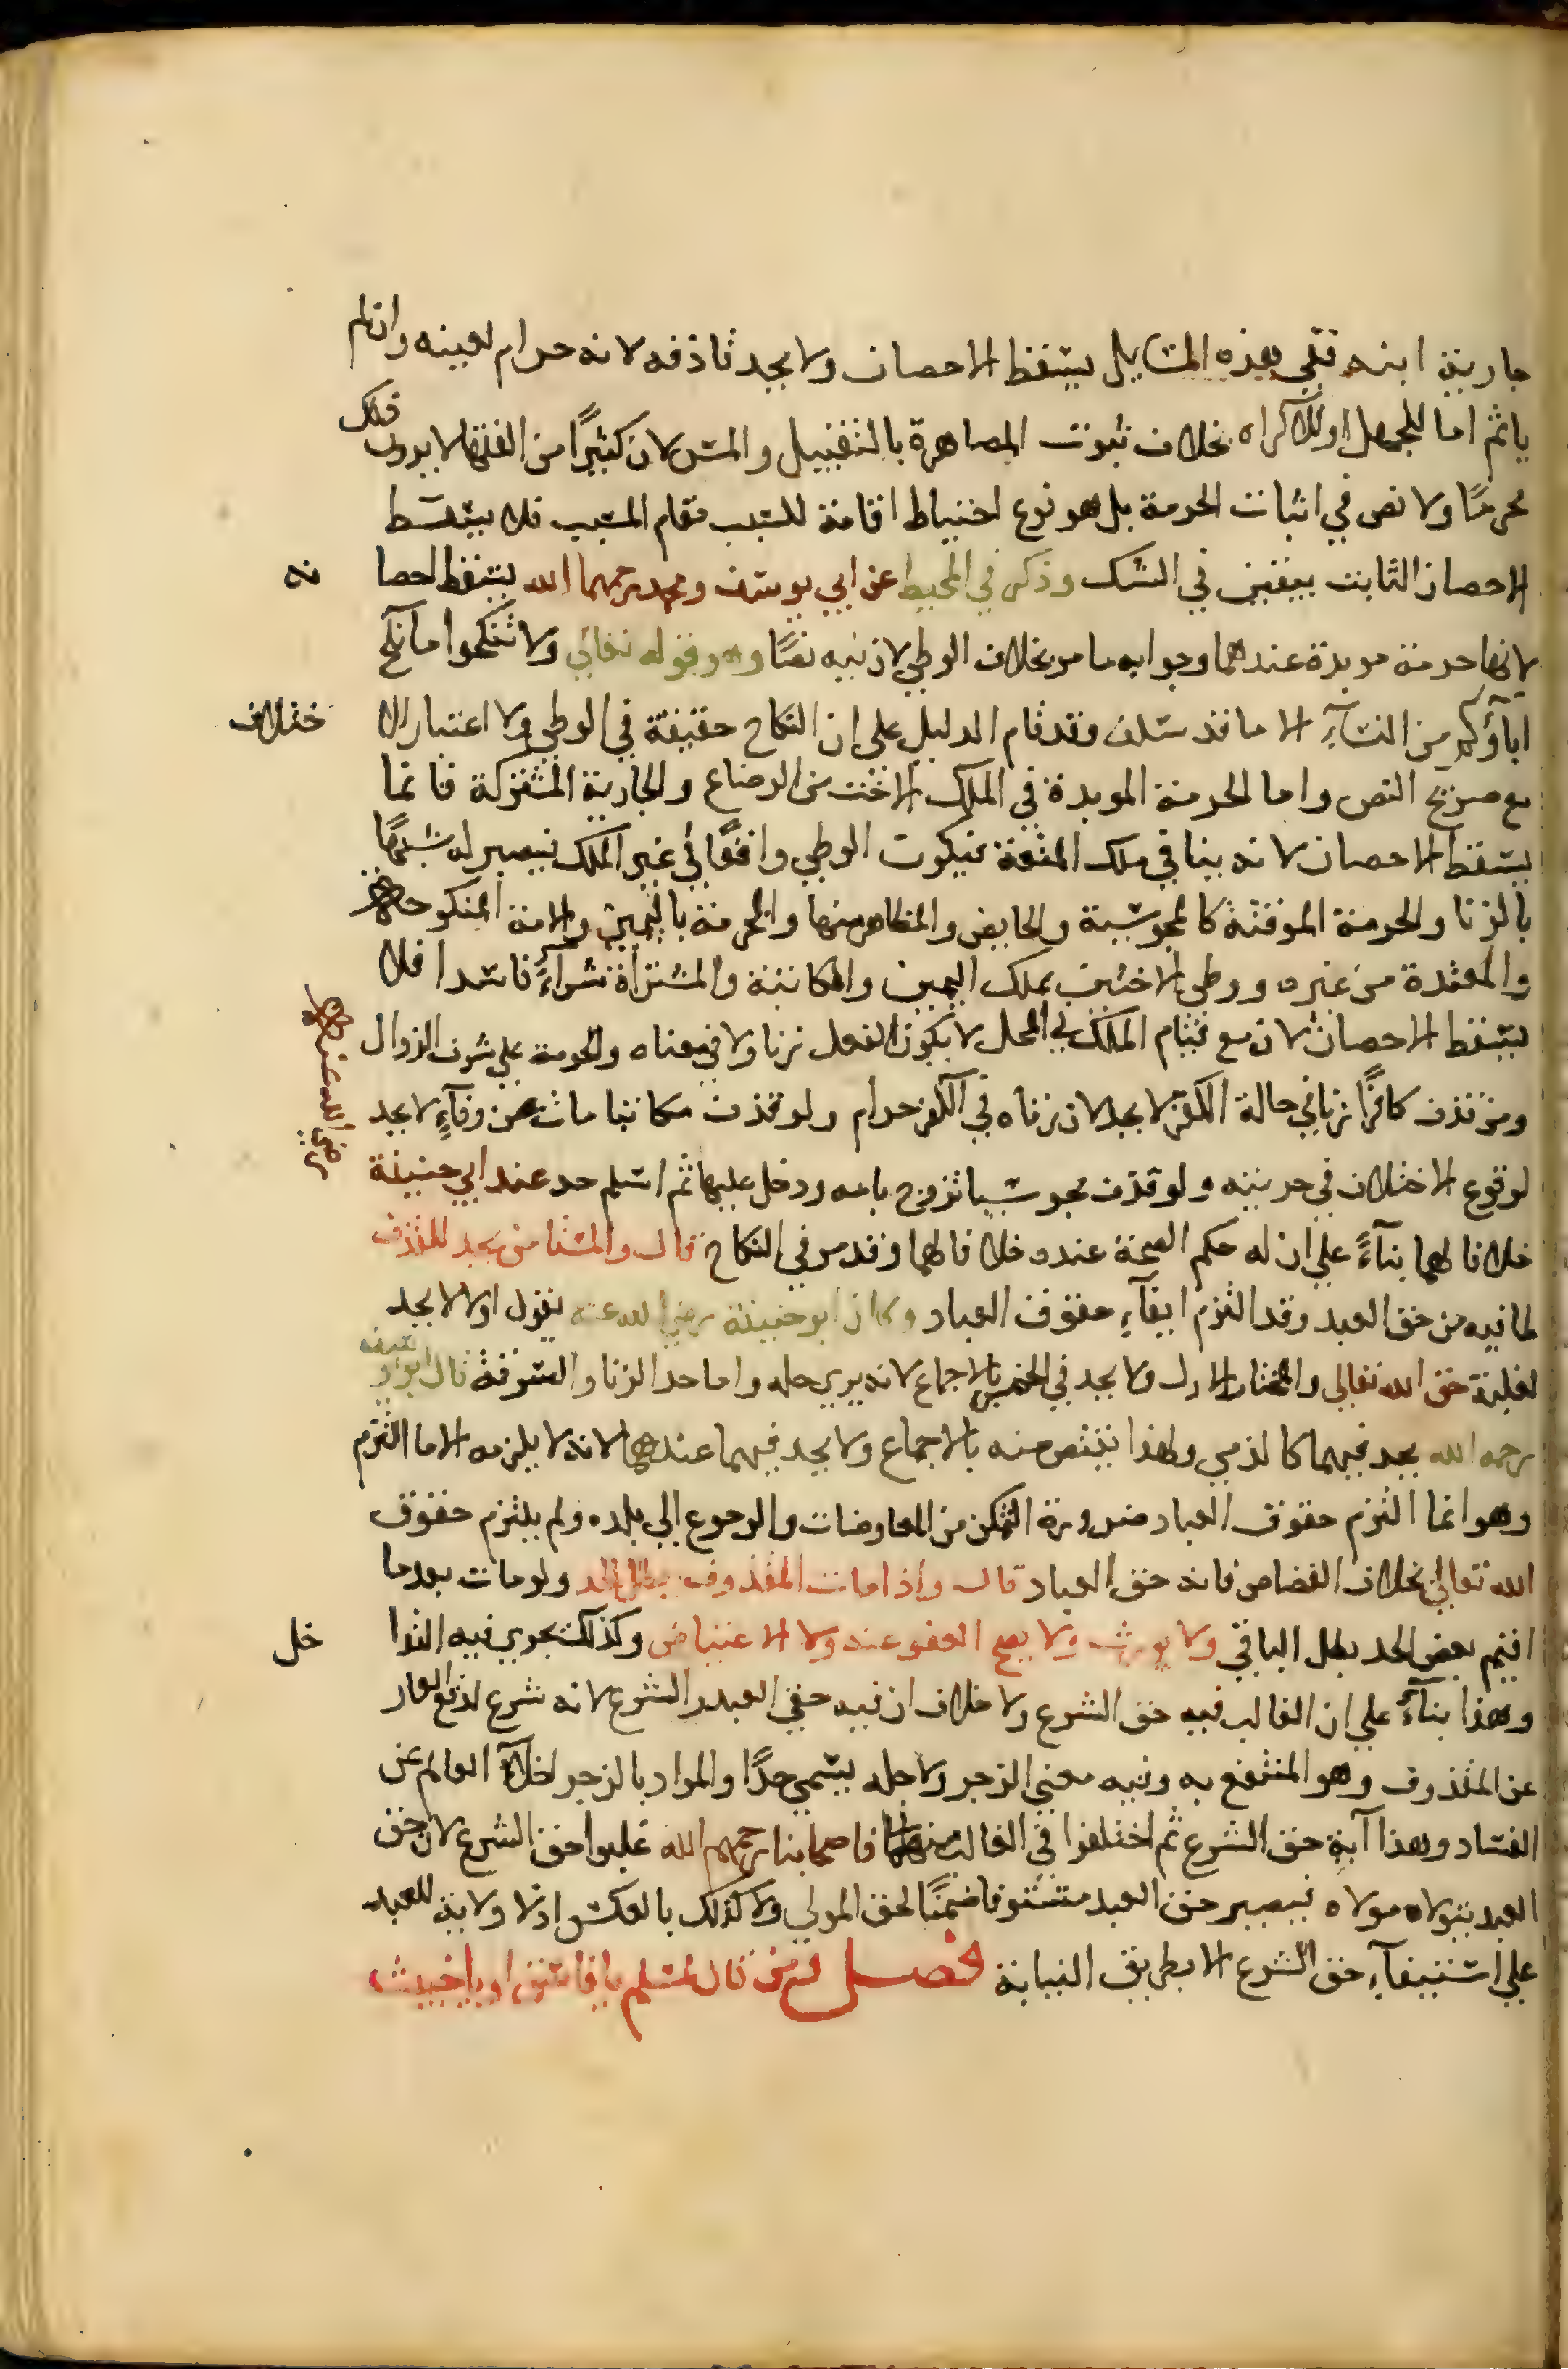 جارية ابنه ففي هذه المسايل يسقط الاحصان ولا يحد قاذفه لانه حرام لعينه وان لم
ياثم اما للجهل او للاكراه بخلاف ثبوت المصاهرة بالتقبيل والمس لان كثيرًا من الفقها لا يرون ذلك
محرمًا ولا نص في اثبات الحرمة بل هو نوع احتياط اقامة للسبب مقام المسبب فلا يسقط
الاحصان الثابت بيقين في الشك وذكر في المحيط عن ابي يوسف ومحمد رحمهما الله يسقط احصا نه
لانها حرمة موبدة عندهما وجوابه ما مر بخلاف الوطي لان فيه نصًا وهو قوله تعالي ولا تنكحوا ما نكح
اباؤكم من النساء الا ما قد سلف وقد قام الدليل علي ان النكاح حقيقة في الوطي ولا اعتبار الا ختلاف
مع صريح النص واما الحرمة الموبدة في الملك الاخت من الرضاع والجارية المشتركة فانما
يسقط الاحصان لانه ينافي ملك المتعة فيكون الوطي واقعًا في غير الملك فيصير له شبهًا
بالزنا والحرمة الموقتة كالمجوسية والحايض والمظاهر منها والمحرمة باليمين والامة المنكوحة
والمعتدة من غيره ووطي الاختين بملك اليمين والمكاتبة والمشتراة شراءً فاسدا فلا
يسقط الاحصان لان مع قيام الملك في المحل لا يكون الفعل زنا ولا في معناه والحرمة علي شرف الزوال
ومن قذف كافرًا زنا في حالة الكفر لا يحد لان زناه في الكفر حرام ولو قذف مكاتبا مات عن وفاءٍ لا يحد
لوقوع الاختلاف في حريته ولو قذف مجوسيا تزوج بامه ودخل عليها ثم اسلم حد عند ابي حنيفة
رضي الله عنه
خلافا لهما بناءً علي ان له حكم الصحة عنده خلافا لهما وقد مر في النكاح قال والمستامن يحد للقذف
لما فيه من حق العبد وقد التزم ايفاء حقوق العباد وكان ابو حنيفة رضي الله عنه يقول اولا لا يحد
لغلبة حق الله تعالي والمختار الاول ولا يحد في الخمر بالاجماع لانه يري حله واما حد الزنا والسرقة قال ابو يوسف
رحمه الله يحد فيهما كالذمي ولهذا يقتص منه بالاجماع ولا يحد فيهما عندهما لانه لا يلزمه الا ما التزم
وهو انما التزم حقوق العباد ضرورة التمكن من المعاوضات والرجوع الي بلده ولم يلتزم حقوق
الله تعالي بخلاف القصاص فانه حق العباد قال واذا مات المقذوف بطل الحد ولو مات بعدما
اقيم بعض الحد بطل الباقي ولا يورث ولا يصح العفو عنه ولا الاعتياض وكذلك يجري فيه التدا خل
وهذا بناءً علي ان الغالب فيه حق الشرع ولا خلاف ان فيه حق العبد والشرع لانه شرع لدفع العار
عن المقذوف وهو المنتفع به وفيه معني الزجر ولاجله يسمي حدًا والمراد بالزجر اخلاء العالم عن
الفساد وهذا آية حق الشرع ثم اختلفوا في الغالب منهما فاصحابنا رحمهم الله غلبوا حق الشرع لان حق
العبد يتولاه مولاه فيصير حق العبد مستوفا ضمنًا لحق المولي ولا كذلك بالعكس اذ لا ولاية للعبد
علي استيفاء حق الشرع الا بطريق النيابة فصل ومن قال لمسلم يا فاسق او يا خبيث